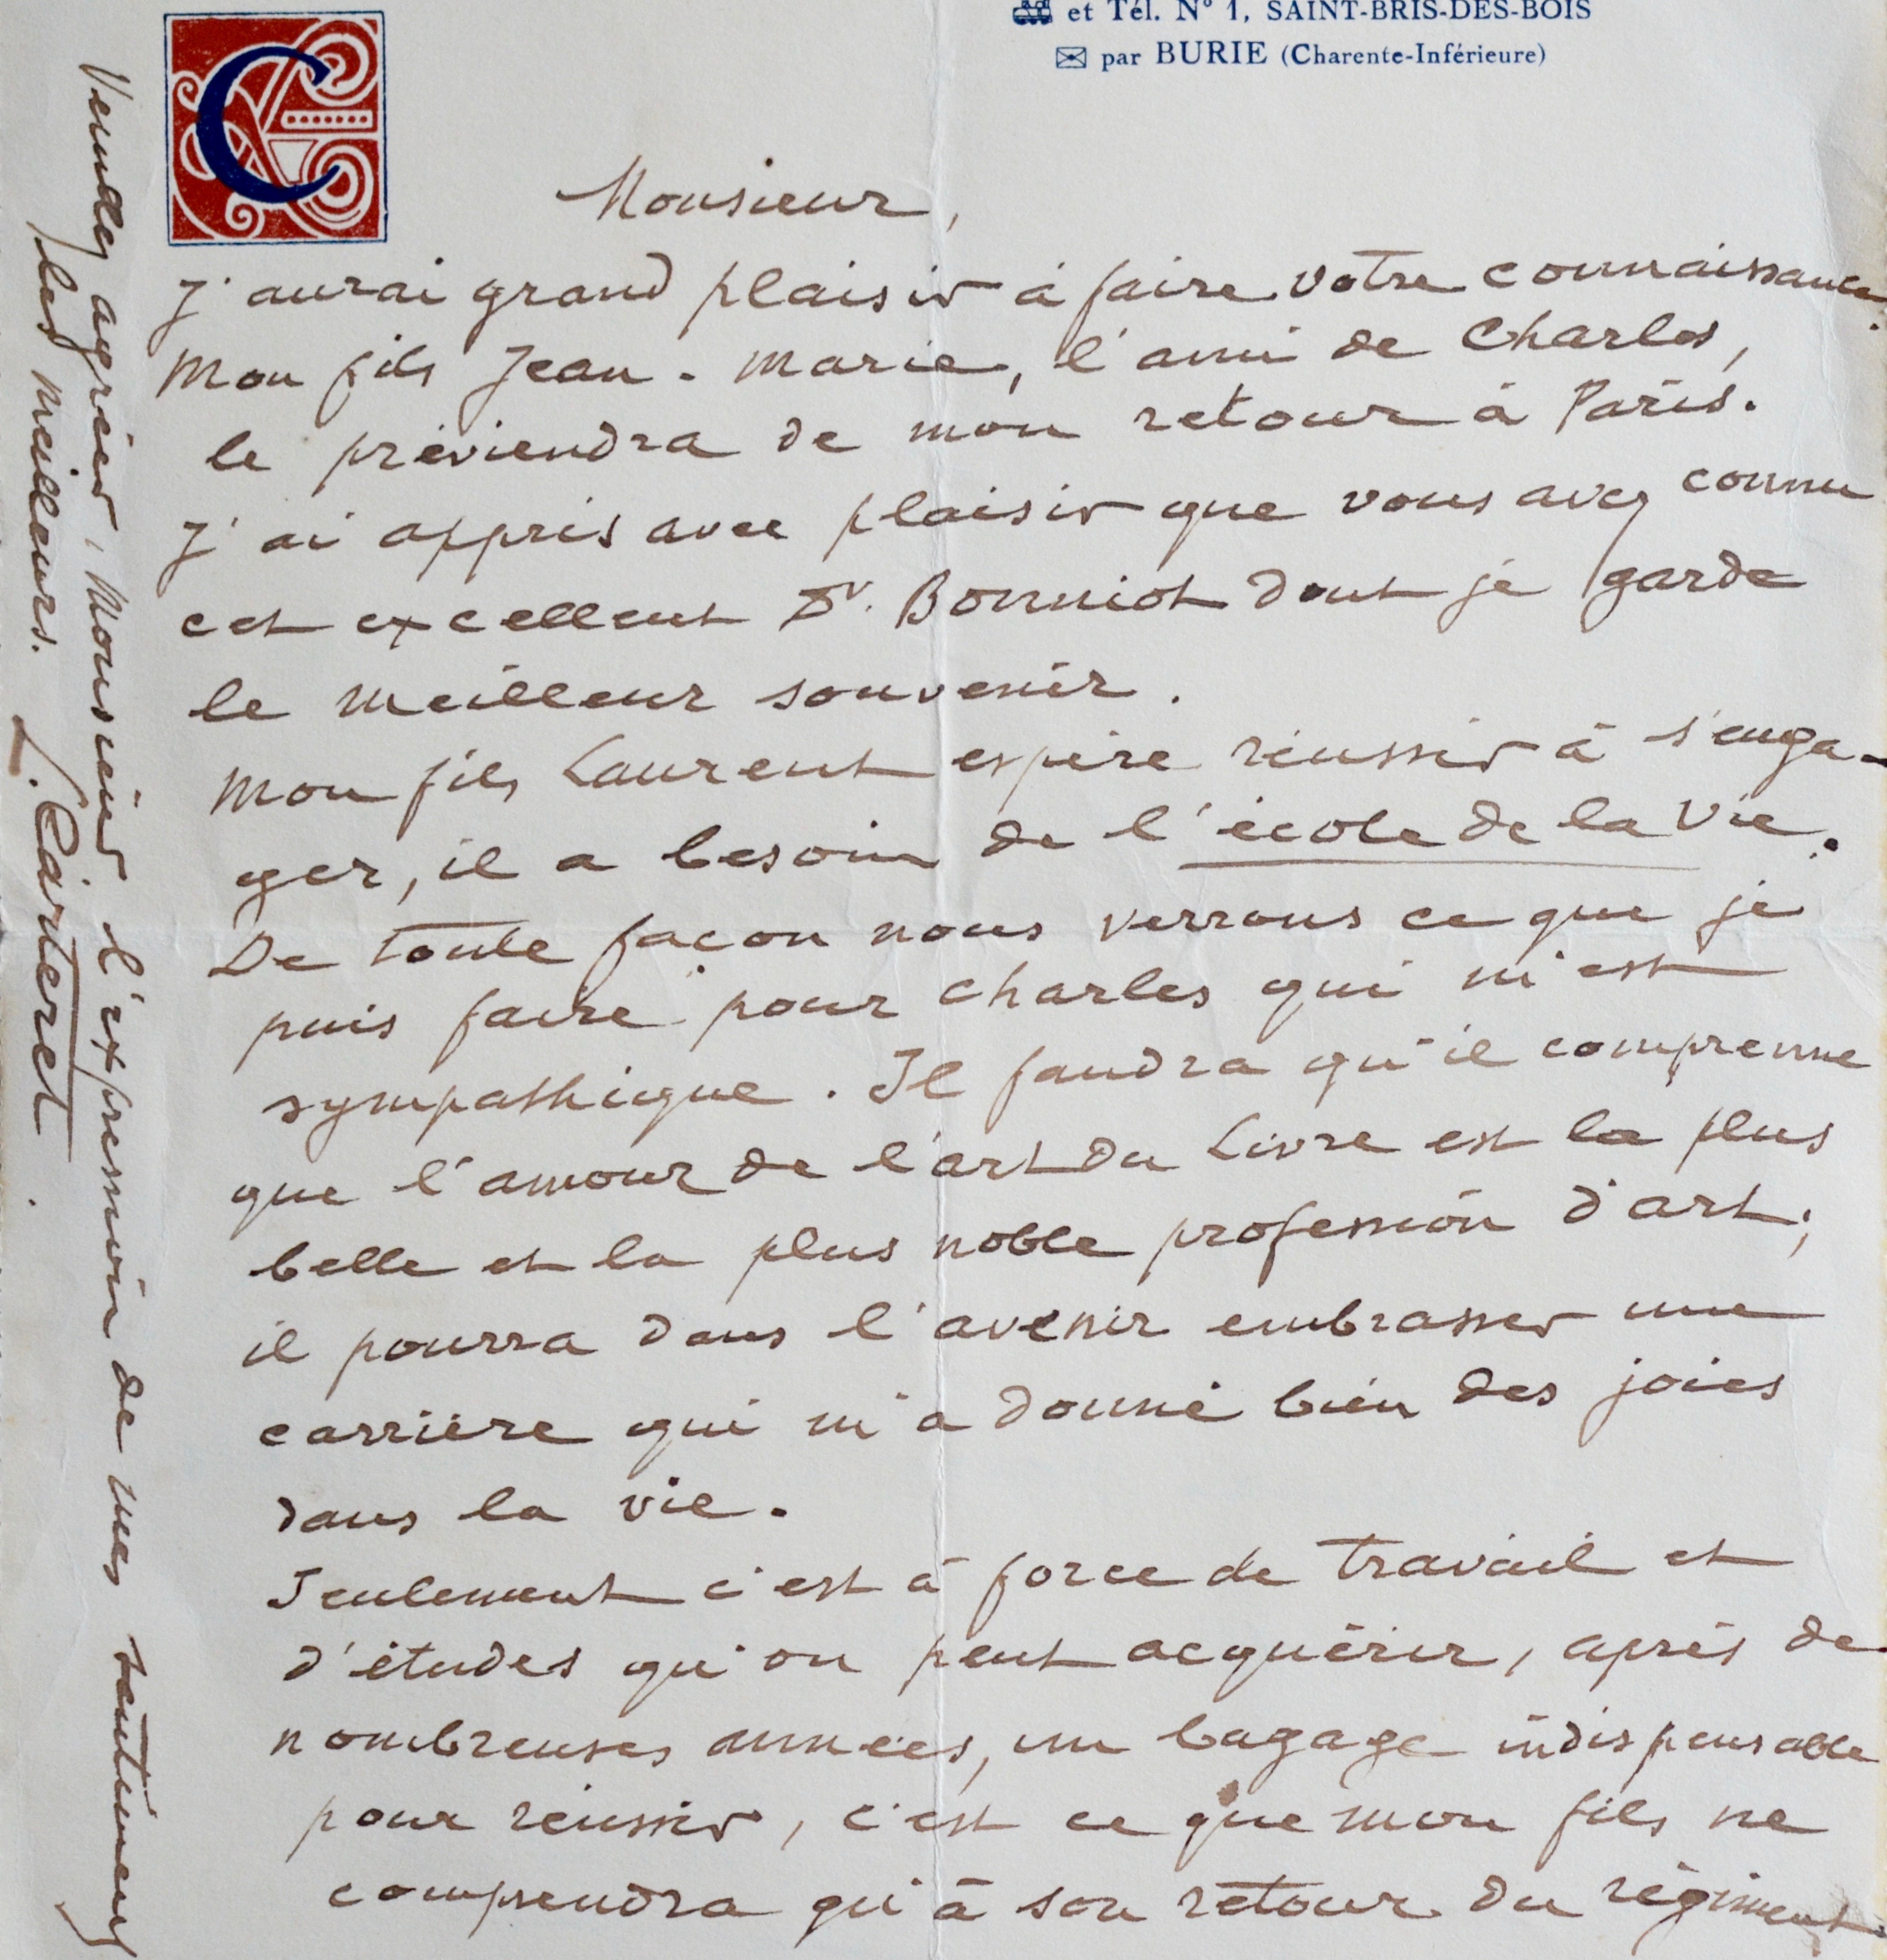 et Tél. N° 1, SAINT-BRIS-DES-BOIS
par BURIE (Charente-Inférieure)
C
Monsieur,
J'aurai grand plaisir à faire votre connaissance.
Mon fils Jean-Marie, l'ami de Charles,
le préviendra de mon retour à Paris.
J'ai appris avec plaisir que vous avez connu
cet excellent Dr. Bonniot dont je garde
le meilleur souvenir.
Mon fils Laurent espère réussir à s'enga-
ger, il a besoin de l'école de la Vie.
De toute façon nous verrons ce que je
puis faire pour Charles qui m'est
sympathique. Il faudra qu'il comprenne
que l'amour de l'art du Livre est la plus
belle et la plus noble profession d'art;
il pourra dans l'avenir embrasser une
carrière qui m'a donné bien des joies
dans la vie.
Seulement c'est à force de travail et
d'études qu'on peut acquérir, après de
nombreuses années, un bagage indispensable
pour réussir, c'est ce que mon fils ne
comprendra qu'à son retour du régiment.
Veuillez agréer, Monsieur, l'expression de mes sentiments
les meilleurs. L. Carteret.